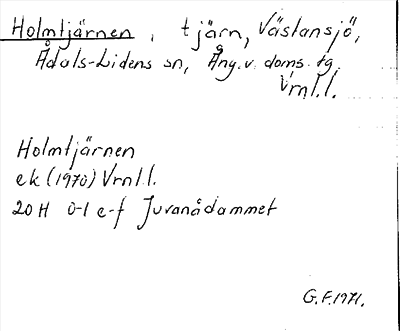 Holmtjärnen, tjärn, Västansjö,
Ådals-Lidens sn, Ång. v. doms. tg.
Vrnl.l.
Holmtjärnen
ek (1970) Vrnl.l.
20H 0-1 e-f Juvanådammet
G.F. 1971.